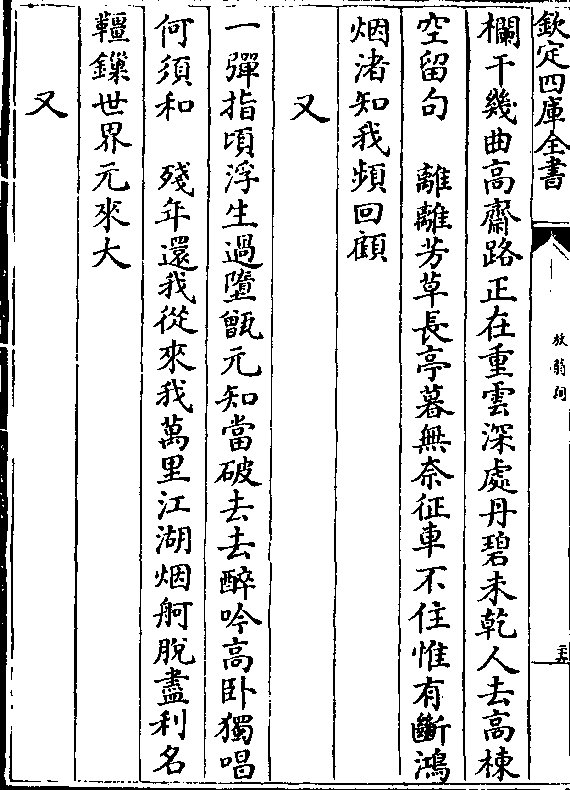 欽定四庫全書
放翁詞
二十五
欄干幾曲高齋路正在重雲深處丹碧未乾人去高棟
空留句　離離芳草長亭暮無奈征車不住惟有斷鴻
烟渚知我頻回顧
又
一彈指頃浮生過墮甑元知當破去去醉吟高卧獨唱
何須和　殘年還我從來我萬里江湖烟舸脫盡利名
韁鏁世界元來大
又